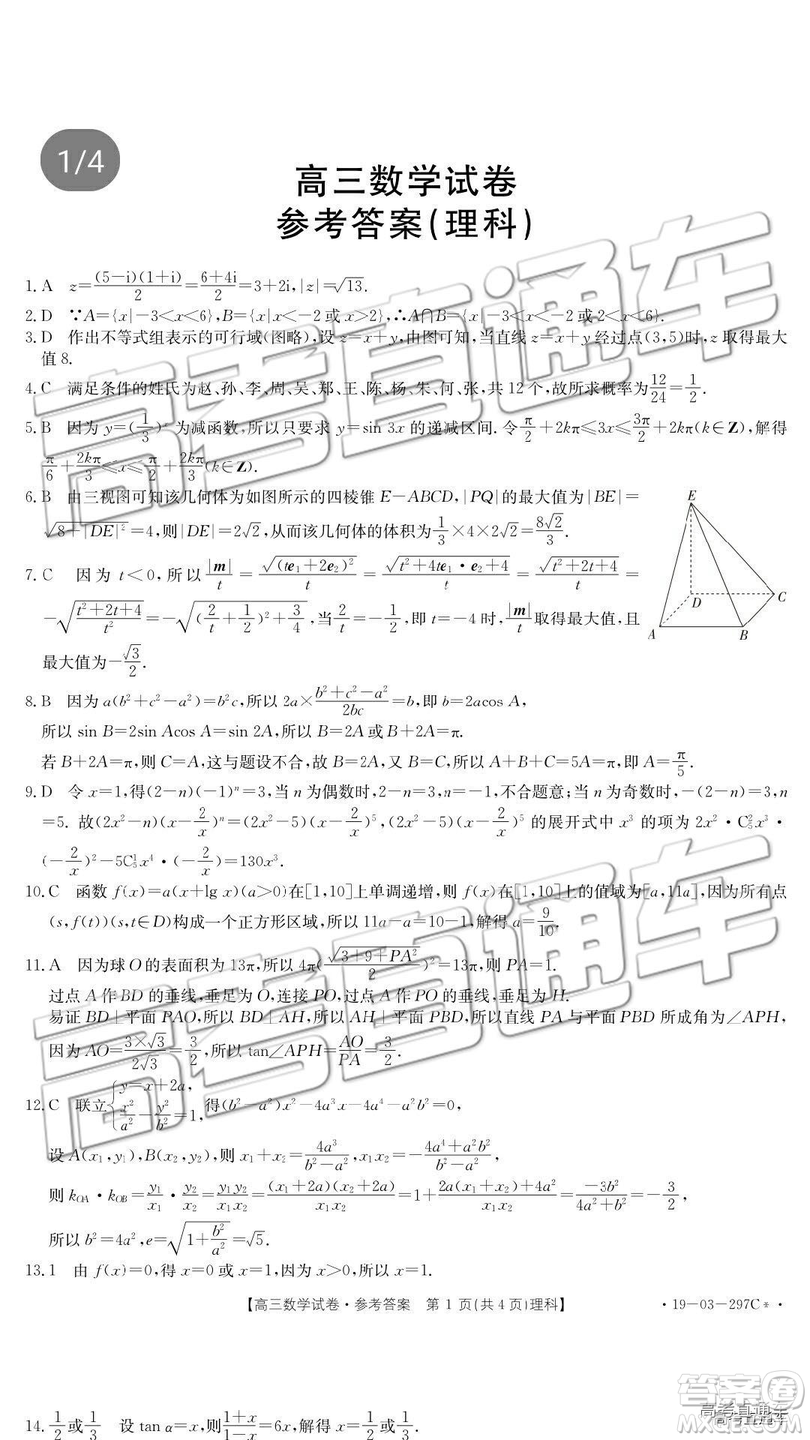 1/4
高三数学试卷
参考答案(理科)
1. A z=(5-i)(1+i)/2=(6+4i)/2=3+2i,|z|=√13.
2. D ∵A={x|-3<x<6},B={x|x<-2或x>2},∴A∩B={x|-3<x<-2或2<x<6}.
3. D 作出不等式组表示的可行域(图略),设z=x+y,由图可知,当直线z=x+y经过点(3,5)时,z取得最大
值8.
4. C 满足条件的姓氏为赵、孙、李、周、吴、郑、王、陈、杨、朱、何、张,共12个,故所求概率为12/24=1/2.
5. B 因为y=(1/3)ˣ为减函数,所以只要求y=sin 3x的递减区间.令π/2+2kπ≤3x≤3π/2+2kπ(k∈Z),解得
π/6+2kπ/3≤x≤π/2+2kπ/3(k∈Z).
6. B 由三视图可知该几何体为如图所示的四棱锥E-ABCD,|PQ|的最大值为|BE|=
√(8+|DE|²)=4,则|DE|=2√2,从而该几何体的体积为1/3×4×2√2=8√2/3.
E
D
C
A
B
7. C 因为t<0,所以|m|/t=√((te₁+2e₂)²)/t=√(t²+4te₁·e₂+4)/t=√(t²+2t+4)/t=
-√((t²+2t+4)/t²)=-√((2/t+1/2)²+3/4),当2/t=-1/2,即t=-4时,|m|/t取得最大值,且
最大值为-√3/2.
8. B 因为a(b²+c²-a²)=b²c,所以2a×(b²+c²-a²)/2bc=b,即b=2acos A,
所以sin B=2sin Acos A=sin 2A,所以B=2A或B+2A=π.
若B+2A=π,则C=A,这与题设不合,故B=2A,又B=C,所以A+B+C=5A=π,即A=π/5.
9. D 令x=1,得(2-n)(-1)ⁿ=3,当n为偶数时,2-n=3,n=-1,不合题意;当n为奇数时,-(2-n)=3,n
=5. 故(2x²-n)(x-2/x)ⁿ=(2x²-5)(x-2/x)⁵,(2x²-5)(x-2/x)⁵的展开式中x³的项为2x²·C₅²x³·
(-2/x)²-5C₅¹x⁴·(-2/x)=130x³.
10. C 函数f(x)=a(x+lg x)(a>0)在[1,10]上单调递增,则f(x)在[1,10]上的值域为[a,11a],因为所有点
(s,f(t))(s,t∈D)构成一个正方形区域,所以11a-a=10-1,解得a=9/10.
11. A 因为球O的表面积为13π,所以4π(√(3+9+PA²)/2)²=13π,则PA=1.
过点A作BD的垂线,垂足为O,连接PO,过点A作PO的垂线,垂足为H.
易证BD⊥平面PAO,所以BD⊥AH,所以AH⊥平面PBD,所以直线PA与平面PBD所成角为∠APH,
因为AO=(3×√3)/(2√3)=3/2,所以tan∠APH=AO/PA=3/2.
12. C 联立{y=x+2a, x²/a²-y²/b²=1,得(b²-a²)x²-4a³x-4a⁴-a²b²=0,
设A(x₁,y₁),B(x₂,y₂),则x₁+x₂=4a³/(b²-a²),x₁x₂=-(4a⁴+a²b²)/(b²-a²),
则k_OA·k_OB=y₁/x₁·y₂/x₂=y₁y₂/x₁x₂=(x₁+2a)(x₂+2a)/x₁x₂=1+(2a(x₁+x₂)+4a²)/x₁x₂=-3b²/(4a²+b²)=-3/2,
所以b²=4a²,e=√(1+b²/a²)=√5.
13. 1 由f(x)=0,得x=0或x=1,因为x>0,所以x=1.
【高三数学试卷·参考答案 第1页(共4页)理科】 ·19-03-297C*·
14. 1/2或1/3 设tan α=x,则(1+x)/(1-x)=6x,解得x=1/2或1/3.
高考直通车
答案圈
高考直通车